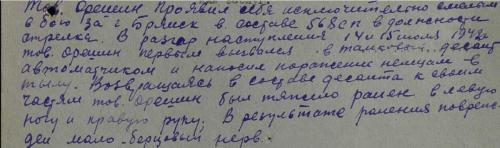 Тов. Орешин проявил себя исключительно смелым
в бою за г. Брянск в составе 568сп в должности
стрелка. В разгар наступления 14 и 15 июля 1942г
тов. Орешин первым вызвался в танковый десант
автоматчиком и наносил поражение немцам в
тылу. Возвращаясь в составе десанта к своим
частям тов. Орешин был тяжело ранен в левую
ногу и правую руку. В результате ранения повреж-
ден мало-берцовый нерв.